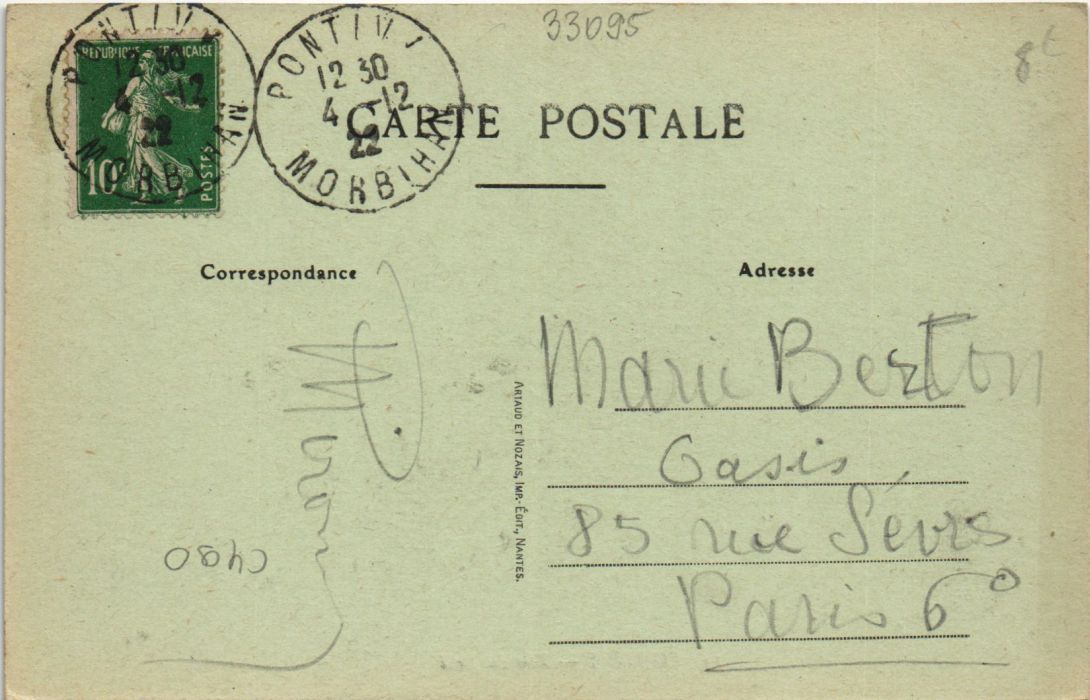 33095
8€
RÉPUBLIQUE FRANÇAISE
10c
POSTES
PONTIVY
12 30
4 -12
22
MORBIHAN
PONTIVY
12 30
4 -12
22
MORBIHAN
CARTE POSTALE
Correspondance
Adresse
ARTAUD ET NOZAIS, IMP.-EDIT., NANTES.
Marie Berton
Oasis
85 rue Sévrs
Paris 6°